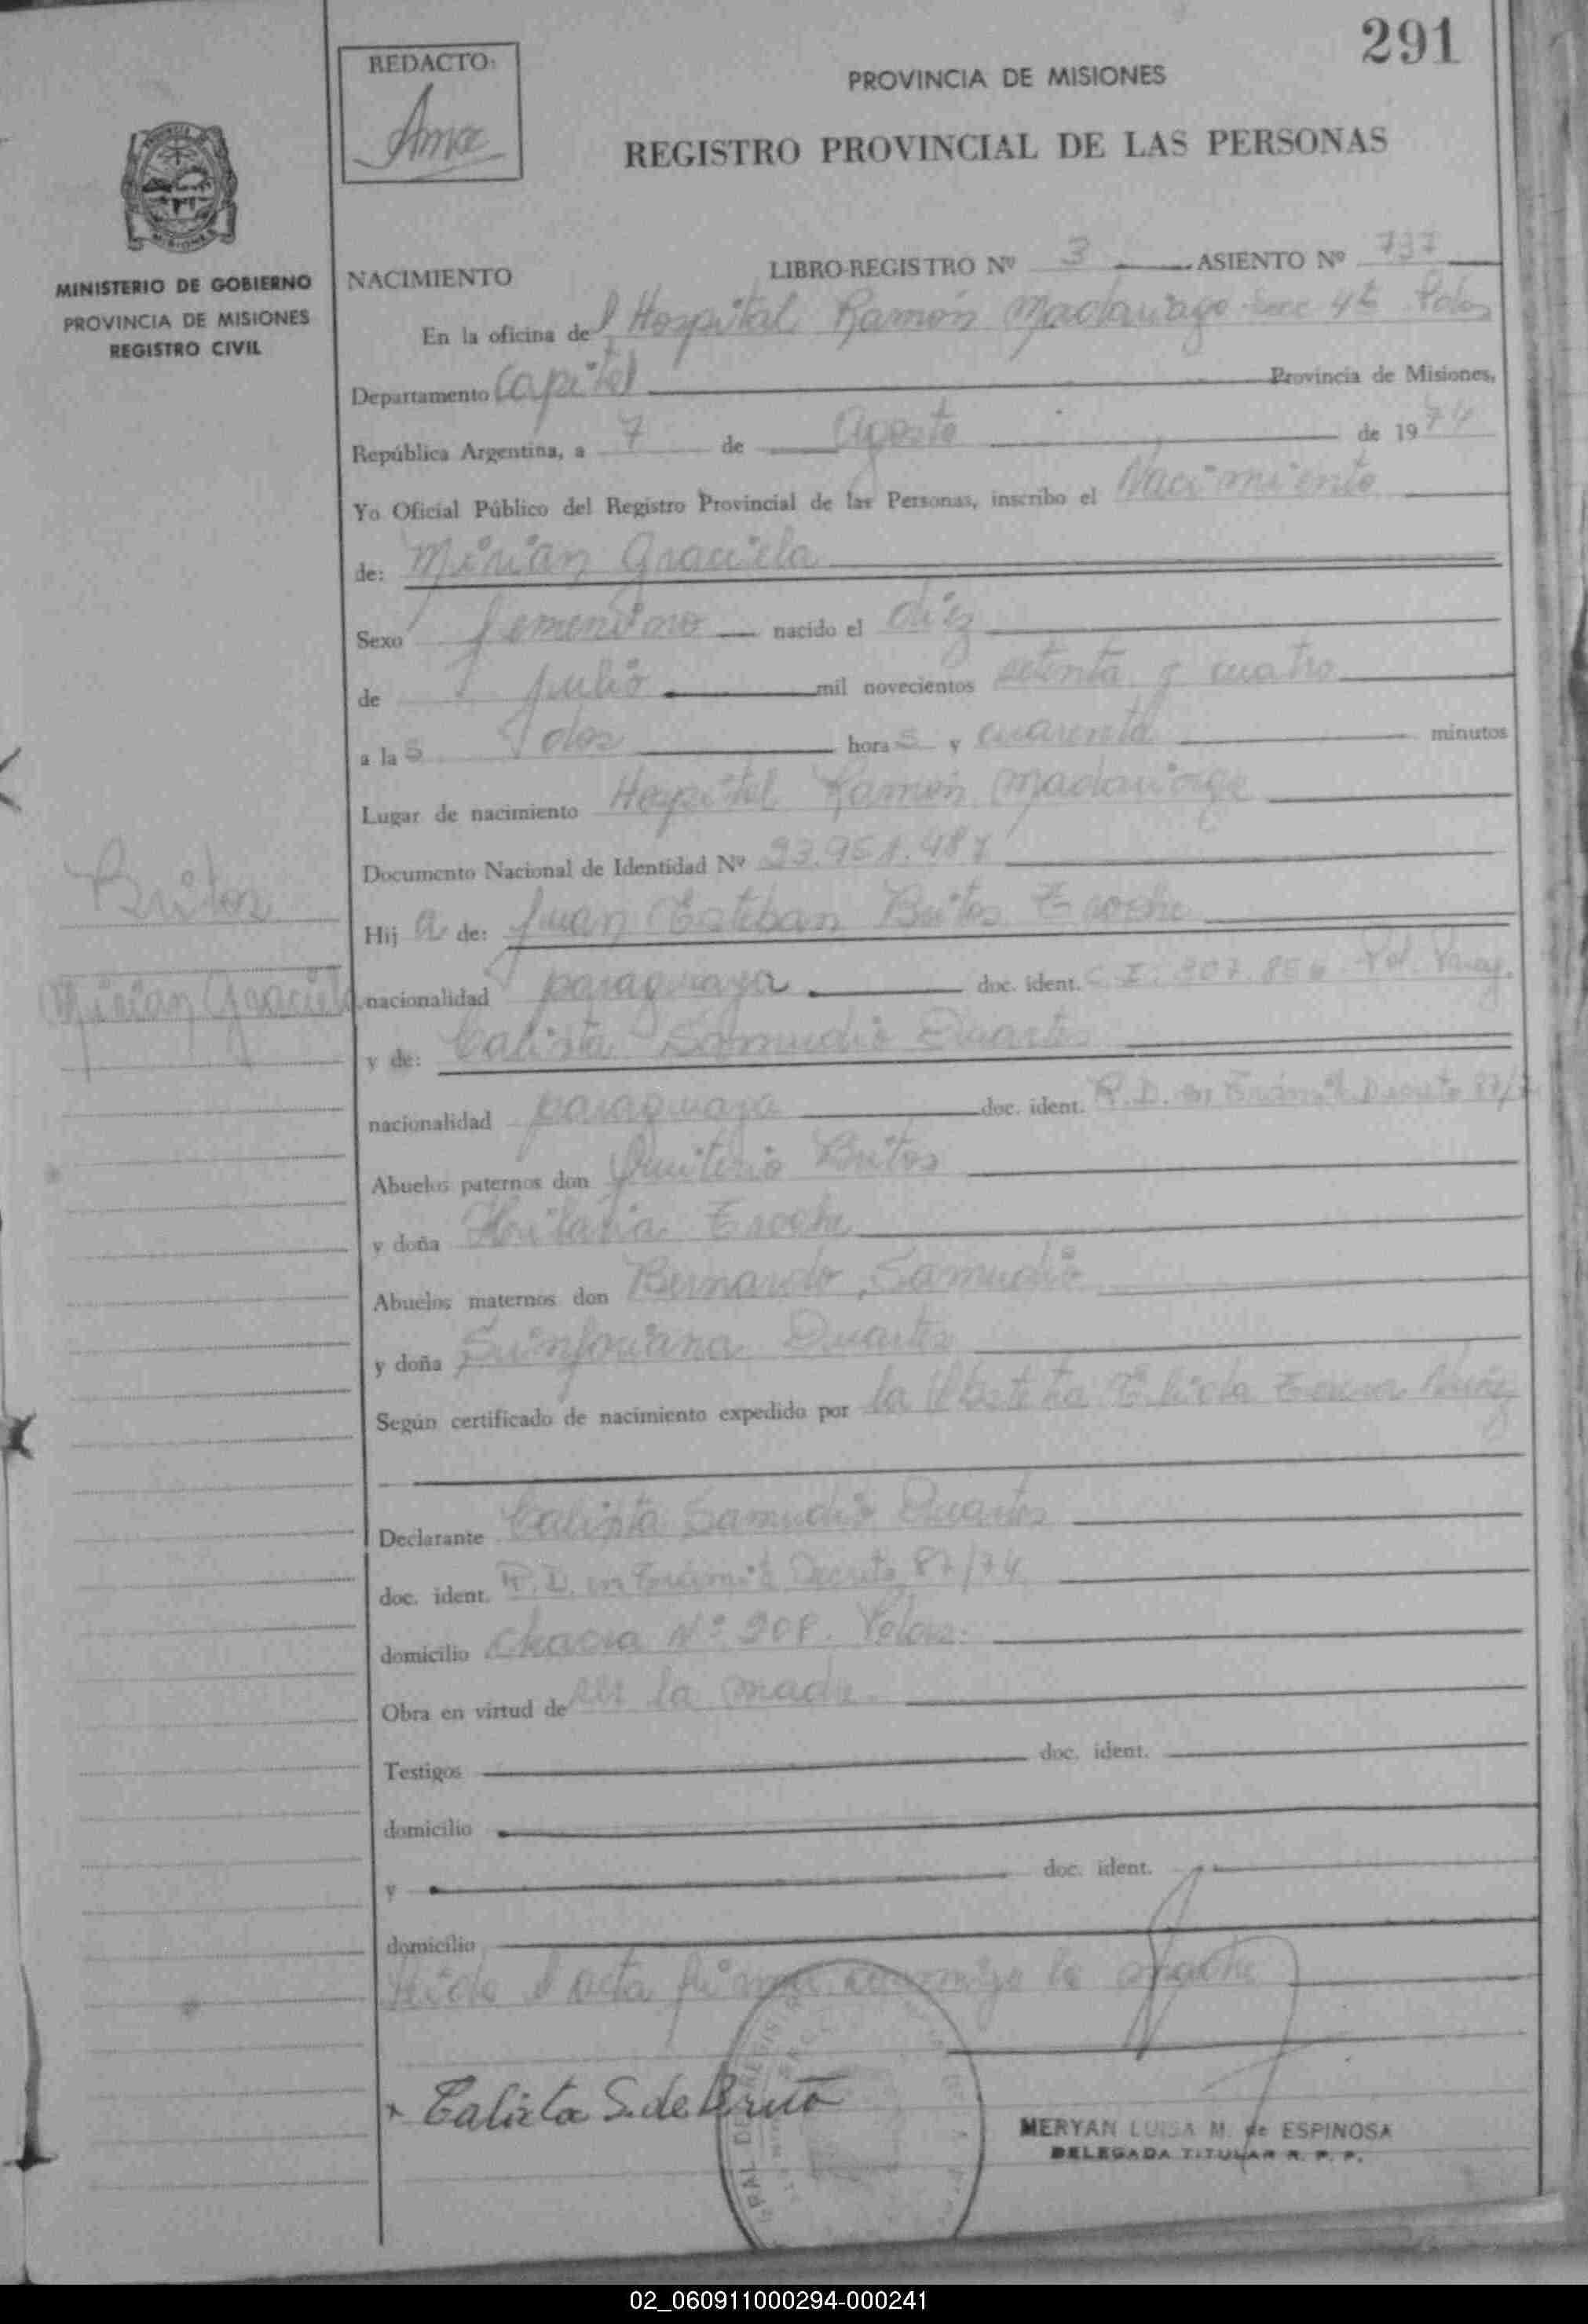 291
REDACTO:
PROVINCIA DE MISIONES
REGISTRO PROVINCIAL DE LAS PERSONAS
MINISTERIO DE GOBIERNO
PROVINCIA DE MISIONES
REGISTRO CIVIL
NACIMIENTO
LIBRO-REGISTRO Nº 3 ASIENTO Nº 737
En la oficina del Hospital Ramón Madariaga Secc 4ta Pdas
Departamento Capital Provincia de Misiones,
República Argentina, a 7 de Agosto de 1974
Yo Oficial Público del Registro Provincial de las Personas, inscribo el Nacimiento
de: Mirian Graciela
Sexo femenino nacido el diez
de julio mil novecientos setenta y cuatro
a las dos horas y cuarenta minutos
Lugar de nacimiento Hospital Ramón Madariaga
Documento Nacional de Identidad Nº 23.951.487
Britos
Hija de: Juan Esteban Britos
Mirian Graciela
nacionalidad paraguaya doc. ident. C.I. 307.856 Pol. Parag.
y de: Calixta Samudio Duarte
nacionalidad paraguaya doc. ident. R.D. en Trámite Decreto 87/7
Abuelos paternos don Quiterio Britos
y doña Hilaria
Abuelos maternos don Bernardo Samudio
y doña Sinforiana Duarte
Según certificado de nacimiento expedido por la Obstetra
Declarante Calixta Samudio Duarte
doc. ident. R.D. en Trámite Decreto 87/74
domicilio Chacra Nº 208. Pdas.
Obra en virtud de ser la madre.
Testigos doc. ident.
domicilio
y doc. ident.
domicilio
Leída el acta firma conmigo la madre
Calixta S. de Brito
MERYAN LUISA M. de ESPINOSA
DELEGADA TITULAR R. P. P.
02_060911000294-000241